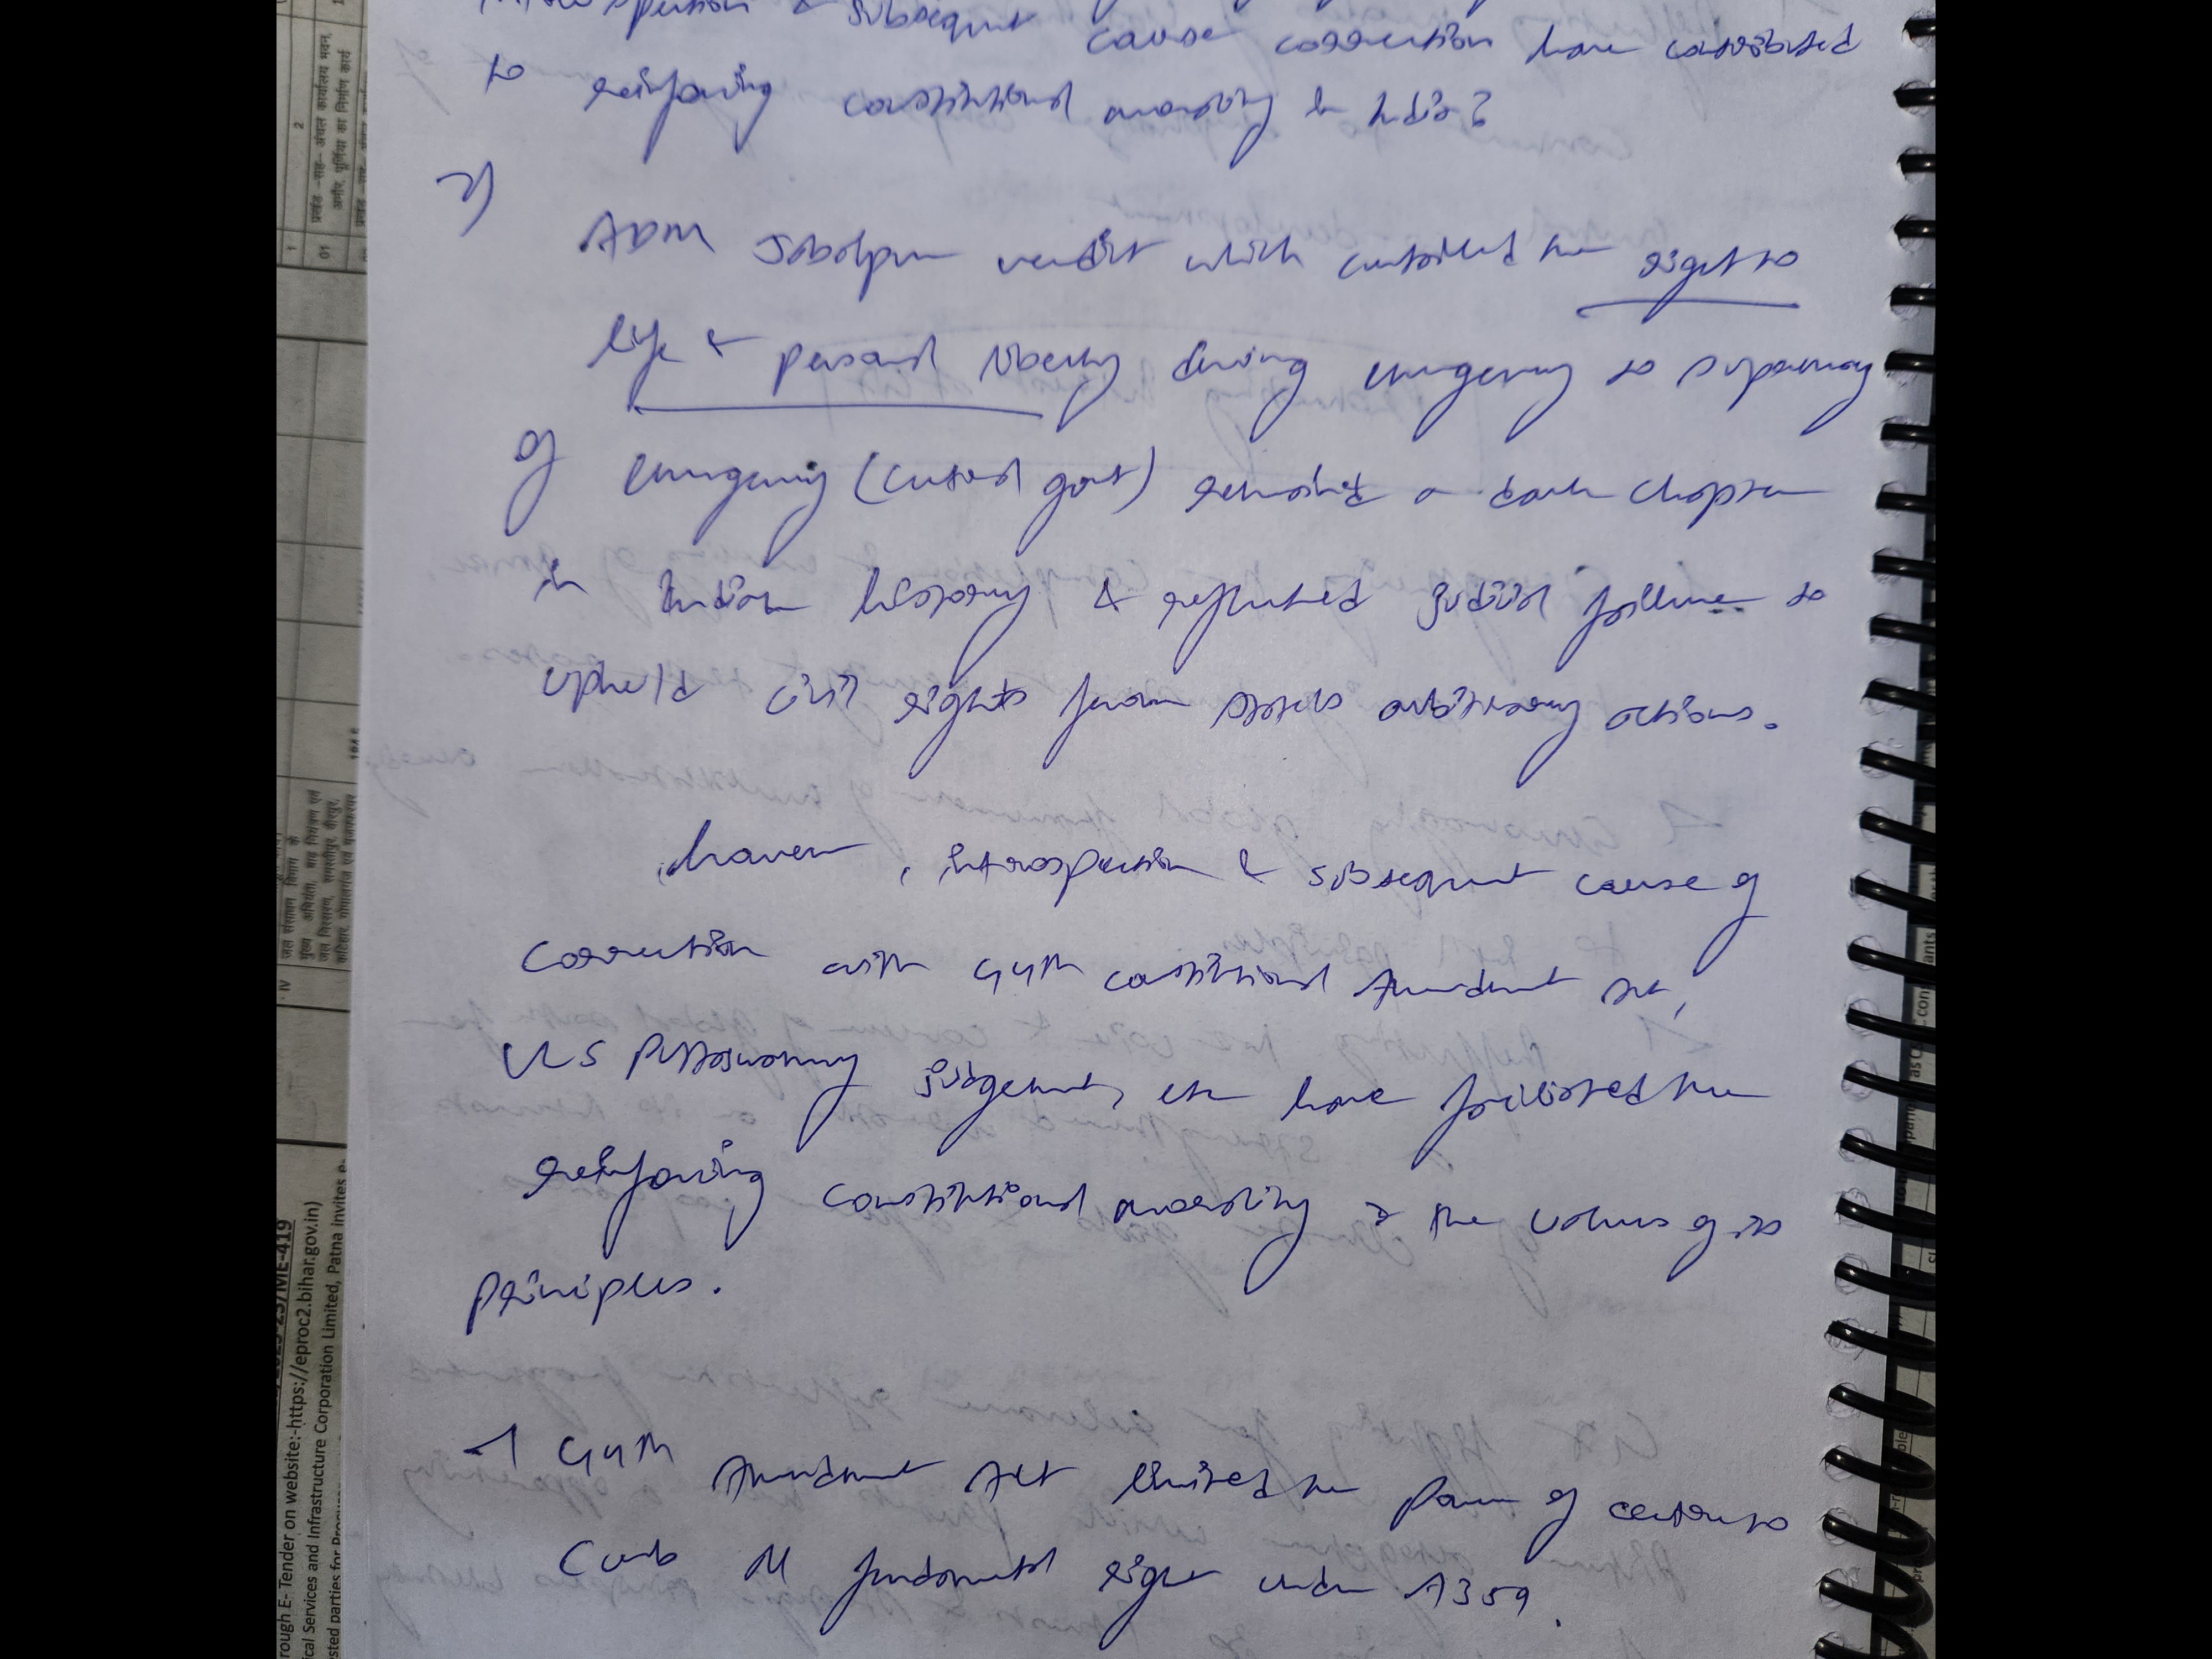 introspection & subsequent cause correction have contributed
to reinforcing constitutional morality in India?
2)
ADM Jabalpur verdict which curtailed the right to
life & personal liberty during emergency to supremacy
of emergency (central govt) remained a dark chapter
in Indian history & reflected judicial failure to
upheld civil rights from states arbitrary actions.
however, introspection & subsequent cause of
correction with 44th constitutional Amendment Act,
KS Puttaswamy judgement, etc have facilitated the
reinforcing constitutional morality & the values of its
principles.
→ 44th Amendment Act limited the power of centre to
Curb all fundamental right under A359.
2
1
01
प्रखंड –सह– अंचल कार्यालय भवन,
अमौर, पूर्णिया का निर्माण कार्य
IV
जल संसाधन विभाग के
मुख्य अभियंता, बाढ़ नियंत्रण एवं
जल निस्सरण, समस्तीपुर, वीरपुर,
कटिहार, गोपालगंज एवं मुजफ्फरपुर
/ME-419
rough E- Tender on website:-https://eproc2.bihar.gov.in)
ical Services and Infrastructure Corporation Limited, Patna invites e-
sted parties for